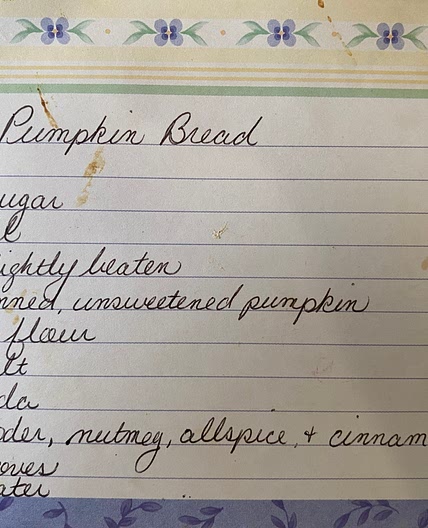 Pumpkin Bread
ugar
l
ightly beaten
nned, unsweetened pumpkin
flour
lt
da
oder, nutmeg, allspice, + cinnam
oves
ater